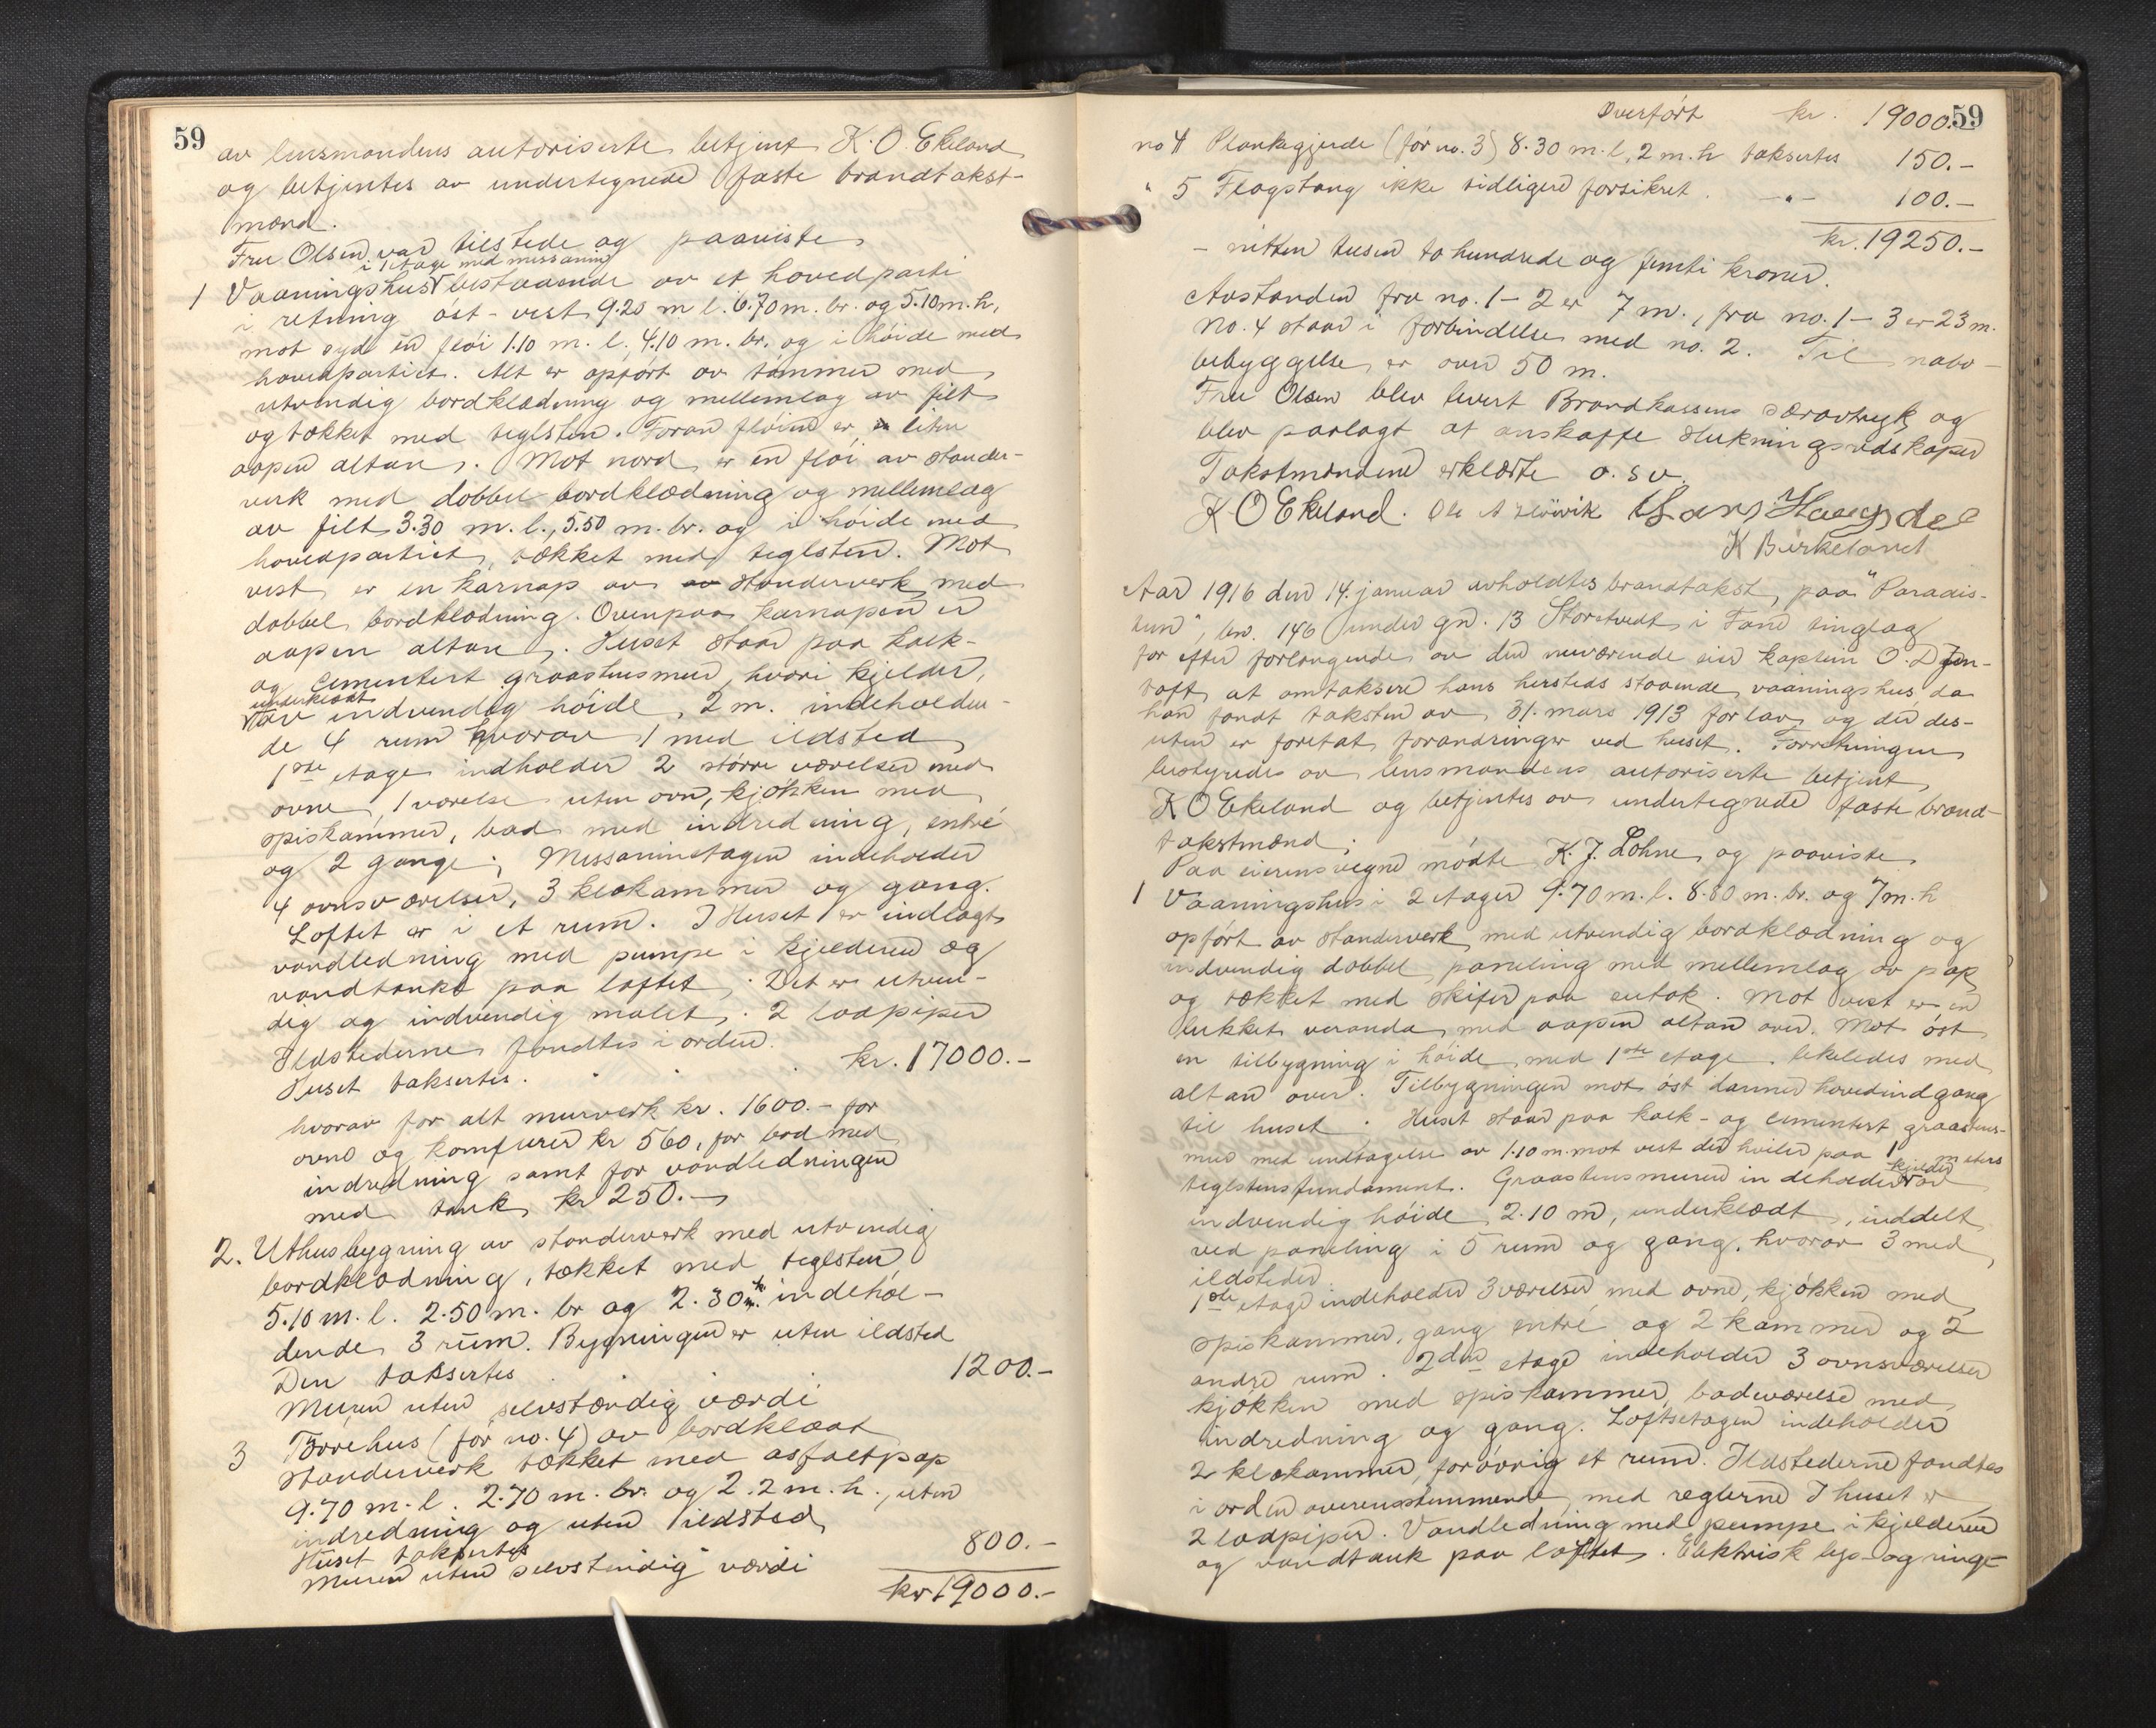 59
av lensmandens autoriserte betjent K. O. Ekeland
og betjentes av undertegnede faste brandtakst-
mænd.
Fru Olsen var tilstede og paaviste
i 1 etage med messanin
1 Vaaningshus bestaaende av et hovedparti
i retning øst-vest 9.20 m l. 6.70 m. br. og 5.10 m. h,
mot syd en fløi 1.10 m. l. 4.10 m. br. og i høide med
hovedpartiet. Alt er opført av tømmer med
utvendig bordklædning og mellemlag av filt
og tækket med teglsten. Foran fløien er liten
aapen altan. Mot nord er en fløi av stander-
verk med dobbel bordklædning og mellemlag
av filt 3.30 m. l., 5.50 m. br. og i høide med
hovedpartiet, tækket med teglsten. Mot
vest er en karnap av standerverk med
dobbel bordklædning. Ovenpaa karnapen er
aapen altan. Huset staar paa kalk-
og cementert graastensmur, hvori kjelder,
underklædt
av indvendig høide 2 m. indeholden-
de 4 rum hvorav 1 med ildsted
1ste etage indholder 2 større værelser med
ovne, 1 værelse uten ovn, kjøkken med
spiskammer, bad med indredning, entré
og 2 gange; Messaninetagen indeholder
4 ovnsværelser, 3 klækammer og gang.
Loftet er i et rum. I Huset er indlagt
vandledning med pumpe i kjelderen og
vandtank paa loftet. Det er utven-
dig og indvendig malet. 2 ladpiper
Ildstederne fandtes i orden.
Huset taksertes. kr. 17000.-
hvorav for alt murverk kr. 1600.- for
ovne og komfurer kr 560, for bad med
indredning samt for vandledningen
med tank kr 250.-
2. Uthusbygning av standerverk med utvendig
bordklædning, tækket med teglsten
5.10 m. l. 2.50 m. br og 2.30 m. h. indehol-
dende 3 rum. Bygningen er uten ildsted
Den taksertes 1200.-
Muren uten selvstændig værdi
3 Tørrehus (før no. 4) av bordklædt
standerverk tækket med asfaltpap
9.70 m. l. 2.70 m. br. og 2.2 m. h., uten
indredning og uten ildsted
Huset taksertes 800.-
Muren uten selvstendig værdi
kr 19000.-
59
Overført kr. 19000.-
no 4 Plankegjerde (før no. 3) 8.30 m. l, 2 m. h taksertes 150.-
" 5 Flagstang ikke tidligere forsikret. -"- 100.-
kr. 19250.-
- nitten tusen to hundrede og femti kroner.
Avstanden fra no. 1 - 2 er 7 m., fra no. 1 - 3 er 23 m.
No. 4 staar i forbindelse med no. 2. Til nabo-
bebyggelse er over 50 m.
Fru Olsen blev levert Brandkassens særavtryk og
blev paalagt at anskaffe slukningsredskaper
Takstmændene erklærte o. s v.
K O Ekeland. Ole A
K Birkeland
Aar 1916 den 14. januar avholdtes brandtakst paa "Paradis-
lund", bn. 146 under gn. 13 Storetvedt i Fane tinglag
for efter forlangende av den nuværende eier kaptein O. D
toft at omtaksere hans hersteds staaende vaaningshus da
han fandt taksten av 31. mars 1913 for lav og der des-
uten er foretat forandringer ved huset. Forretningen
bestyredes av lensmandens autoriserte betjent
K O Ekeland og betjentes av undertegnede faste brand-
takstmænd;
Paa eierens vegne mødte K. J. Lohne og paaviste
1 Vaaningshus i 2 etager 9.70 m. l. 8.80 m. br. og 7 m. h
opført av standerverk med utvendig bordklædning og
indvendig dobbel paneling med mellemlag av pap
og tækket med skifer paa sutak. Mot vest er en
lukket veranda med aapen altan over. Mot øst
en tilbygning i høide med 1ste etage. likeledes med
altan over. Tilbygningen mot øst danner hovedindgang
til huset. Huset staar paa kalk- og cementert graastens-
mur med undtagelse av 1.10 m. mot vest der hviler paa 1 meters
teglstensfundament. Graastensmuren indeholder kjelder av
indvendig høide 2.10 m, underklædt, inddelt
ved paneling i 5 rum og gang. hvorav 3 med
ildsteder.
1ste etage indeholder 3 værelser med ovne, kjøkken med
spiskammer, gang entré og 2 kammer og 2
andre rum. 2den etage indeholder 3 ovnsværelser
kjøkken med spiskammer, badeværelse med
indredning og gang. Loftsetagen indeholder
2 klækammer, forøvrig et rum. Ildstederne fandtes
i orden overensstemmende med reglerne I huset er
2 ladpiper. Vandledning med pumpe i kjelderen
og vandtank paa loftet. Elektrisk lys- og ringe-